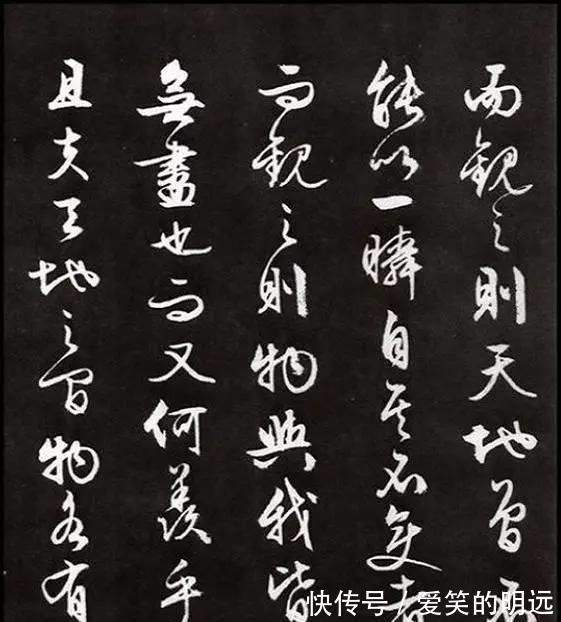 而觀之則天地曾不
能以一瞬自其不變者
而觀之則物與我皆
無盡也而又何羨乎
且夫天地之間物各有
快传号/爱笑的明远